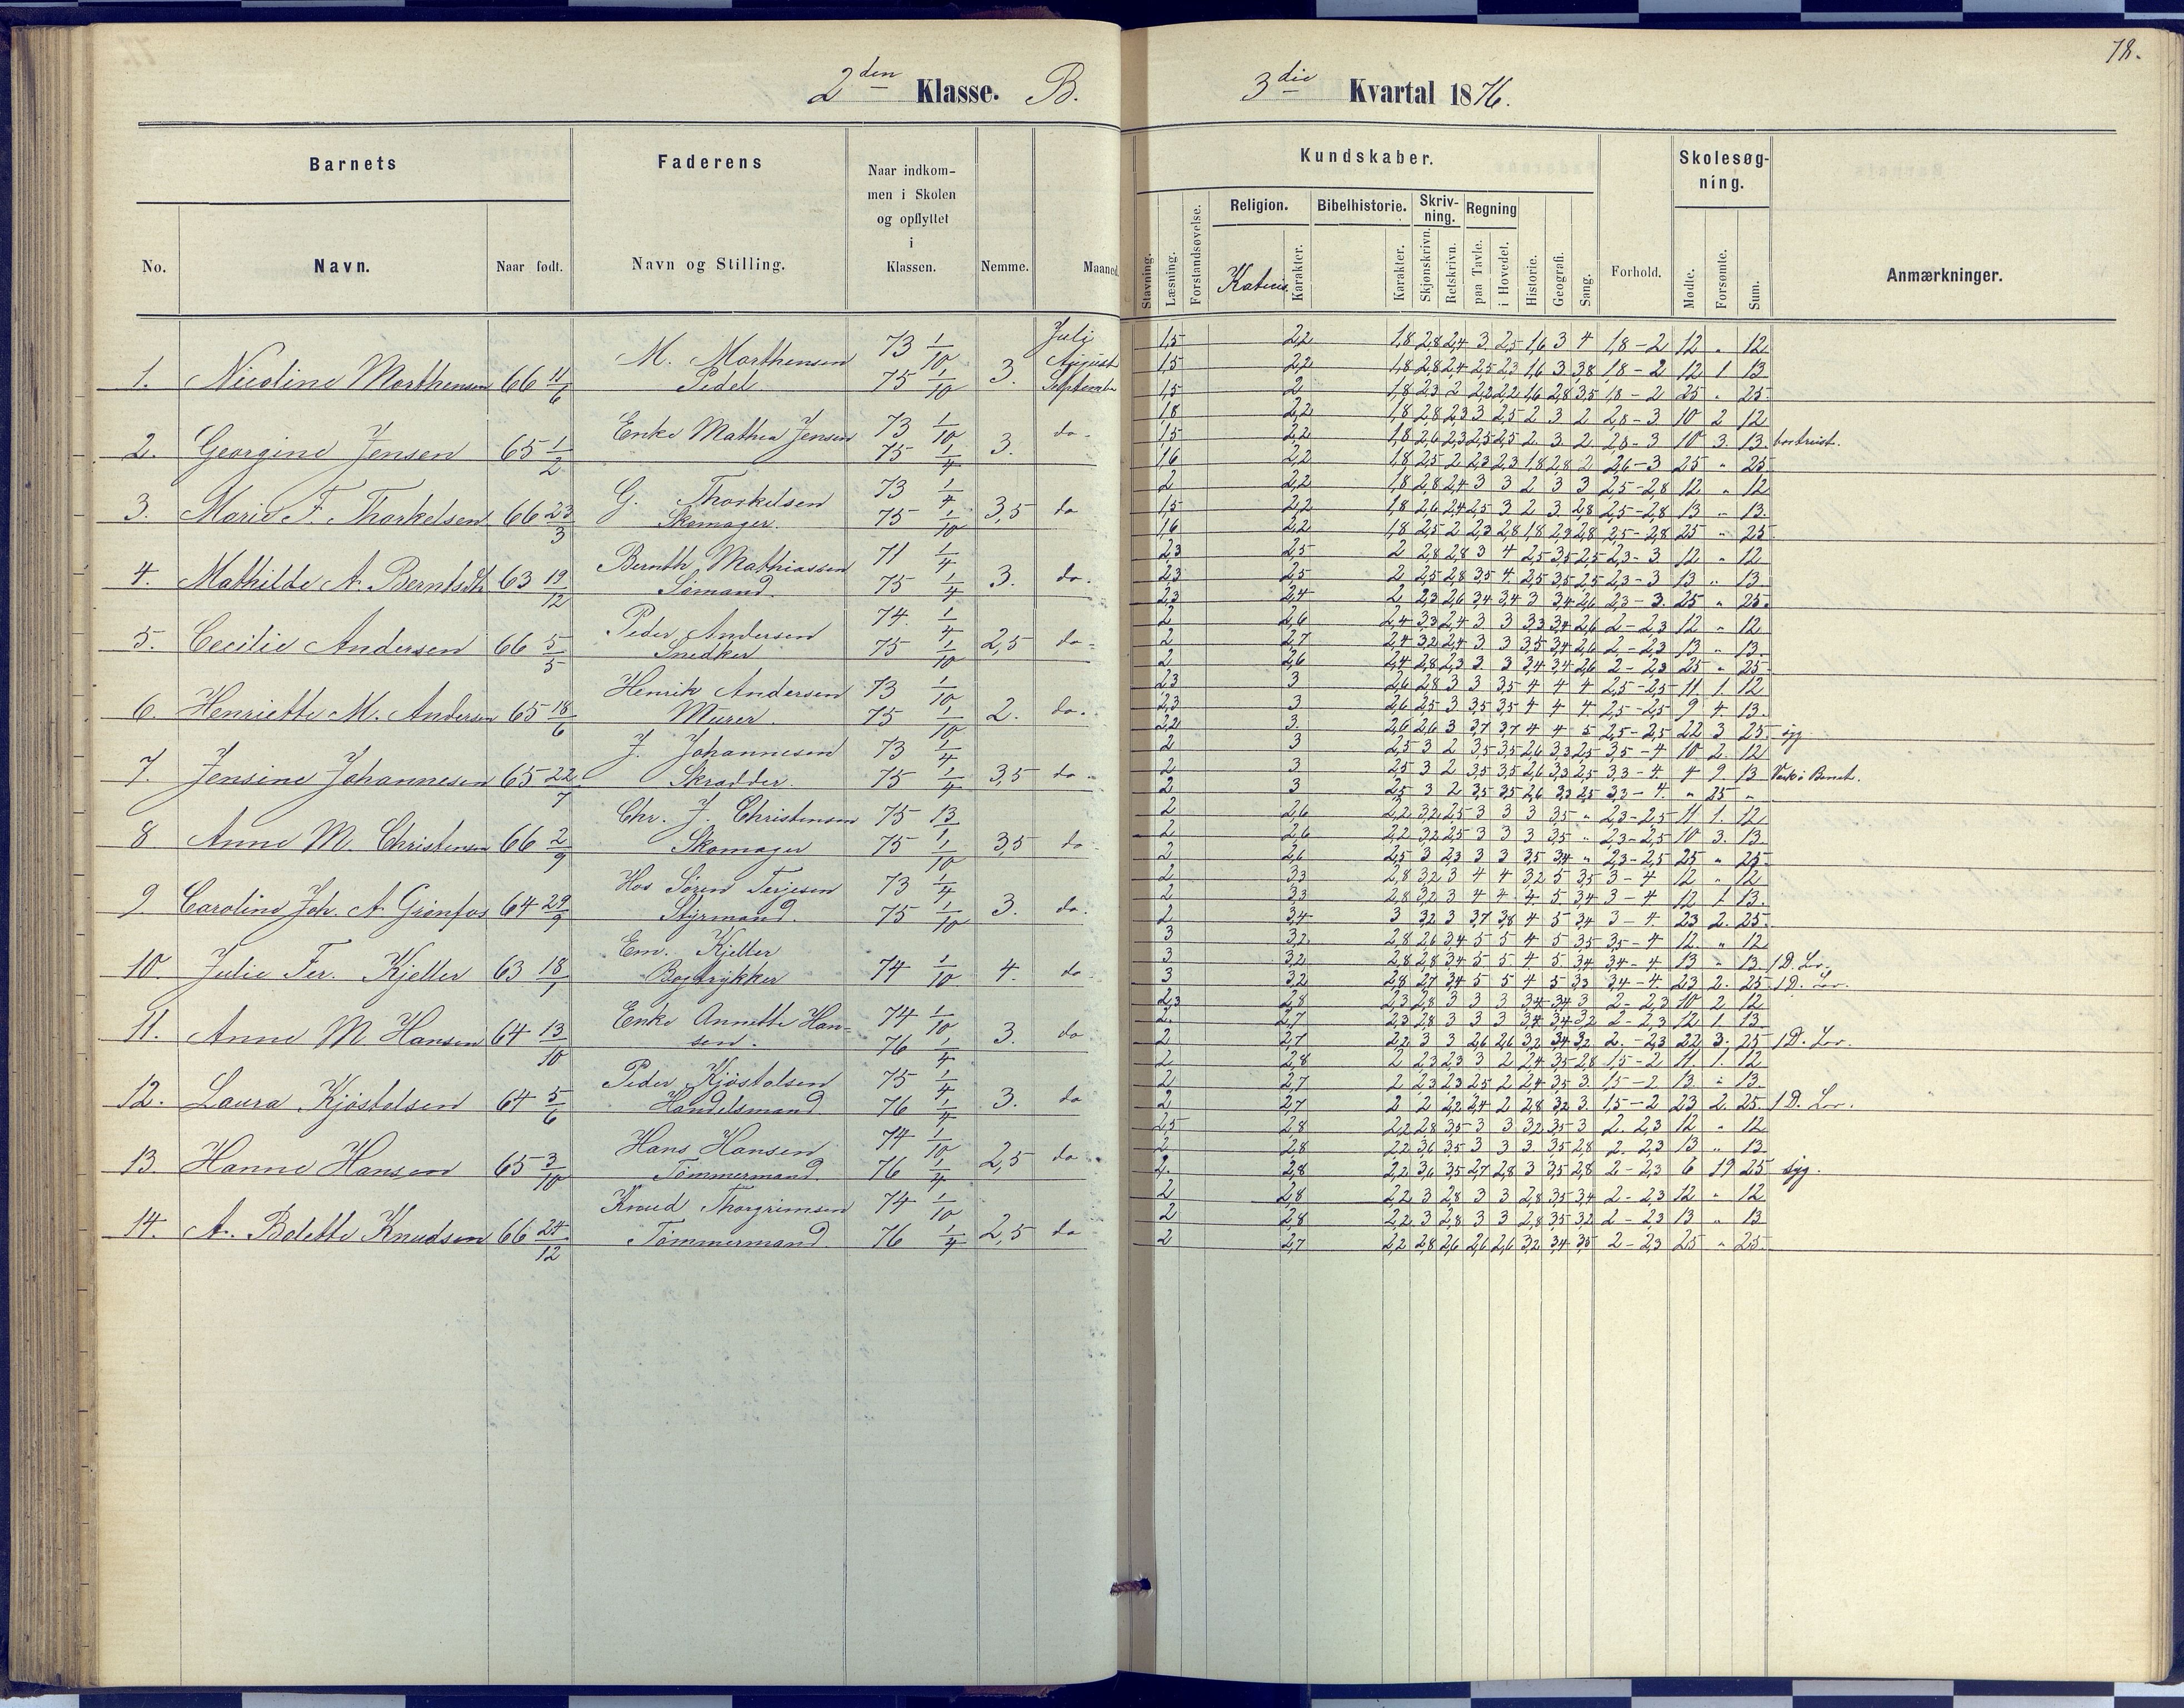 78.
2den Klasse. B.
3die Kvartal 1876.
Barnets
Faderens
Naar indkommen i Skolen og opflyttet i Klassen.
No.
Navn.
Naar født.
Navn og Stilling.
Nemme.
Maaned.
Kundskaber.
Skolesøgning.
Stavning.
Læsning.
Forstandsøvelse.
Religion.
Katecis.
Karakter.
Bibelhistorie.
Karakter.
Skrivning.
Skjønskrivn.
Retskrivn.
Regning
paa Tavle.
i Hovedet.
Historie.
Geografi.
Sang.
Forhold.
Mødte.
Forsømte.
Sum.
Anmærkninger.
1. Nicoline Morthensen 66 11/6 M. Morthensen Pedel 73 1/10 75 1/10 3. Juli August September
1,5 2,2 1,8 2,8 2,4 3 2,5 1,6 3 4 1,8-2 12 " 12
1,5 2,2 1,8 2,8 2,4 2,5 2,3 1,6 3 3,8 1,8-2 12 1 13
1,5 2 1,8 2,3 2 2,2 2,2 1,6 2,8 3,5 1,8-2 25 " 25
2. Georgine Jensen 65 1/2 Enke Mathea Jensen 73 1/10 75 1/4 3. do
1,8 2,2 1,8 2,8 2,3 3 2,5 2 3 2 2,8-3 10 2 12
1,5 2,2 1,8 2,6 2,3 2,5 2,5 2 3 2 2,8-3 10 3 13 bortreist.
1,6 2,2 1,8 2,5 2 2,3 2,3 1,8 2,8 2 2,6-3 25 " 25
3. Marie F. Thorkelsen 66 23/3 G. Thorkelsen Skomager. 73 1/4 75 1/10 3,5 do
2 2,2 1,8 2,8 2,4 3 3 2 3 3 2,5-2,8 12 " 12
1,5 2,2 1,8 2,6 2,4 2,5 3 2 3 2,8 2,5-2,8 13 " 13
1,6 2,2 1,8 2,5 2 2,3 2,8 1,8 2,9 2,8 2,5-2,8 25 " 25
4. Mathilde A. Berntsdtr 63 19/12 Bernth Mathiassen Sømand. 71 1/4 75 1/4 3. do.
2,3 2,5 2 2,8 2,8 3 4 2,5 3,5 2,5 2,3-3 12 " 12
2,3 2,5 2 2,5 2,8 3,5 4 2,5 3,5 2,5 2,3-3 13 " 13
2,3 2,4 2 2,3 2,6 3,4 3,4 3 3,4 2,6 2,3-3 25 " 25
5. Cecilie Andersen 66 5/5 Peder Andersen Snedker 74 1/4 75 1/10 2,5 do
2 2,6 2,4 3,3 2,4 3 3 3,3 3,4 2,6 2-2,3 12 " 12
2 2,7 2,4 3,2 2,4 3 3 3,5 3,4 2,6 2-2,3 13 " 13
2 2,6 2,4 2,8 2,3 3 3 3,4 3,4 2,6 2-2,3 25 " 25
6. Henriette M. Andersen 65 18/6 Henrik Andersen Murer. 73 1/10 75 1/10 2. do.
2,3 3 2,6 2,8 3 3 3,5 4 4 4 2,5-2,5 11 1 12
2,3 3 2,6 2,5 3 3,5 3,5 4 4 4 2,5-2,5 9 4 13
2,2 3 2,6 2,6 3 3,7 3,7 4 4 5 2,5-2,5 22 3 25 syg
7. Jensine Johannesen 65 22/7 J. Johannesen Skrædder. 73 1/4 75 1/4 3,5 do
2 3 2,5 3 2 3,5 3,5 2,6 3,3 2,5 3,5-4 10 2 12
2 3 2,5 3 2 3,5 3,5 2,6 3,3 2,5 3,3-4 4 9 13 Værk i Benet.
2 3 2,5 3 2 3,5 3,5 2,6 3,3 2,5 3,3-4 " 25 "
8 Anne M. Christensen 66 2/9 Chr. J. Christensen Skomager 75 13/ 75 1/10 3,5 do
2 2,6 2,2 3,2 2,5 3 3 3 3,5 " 2,3-2,5 11 1 12
2 2,6 2,2 3,2 2,5 3 3 3 3,5 " 2,3-2,5 10 3 13
2 2,6 2,5 3 2,3 3 3 3,5 3,4 " 2,3-2,5 25 " 25
9. Caroline Joh. A. Grønfos 64 29/9 Hos Søren Terjesen Styrmand. 73 1/4 75 1/10 3. do.
2 3,3 2,8 3,2 3 4 4 3,2 5 3,5 3-4 12 " 12
2 3,3 2,8 3,2 3 4 4 4 5 3,4 3-4 12 1 13
2 3,4 3 3,2 3 3,7 3,8 4 5 3,4 3-4 23 2 25
10. Julie Fer. Kjeller 63 18/1 Em. Kjeller Bogtrykker 74 1/10 4. do
3 3,2 2,8 2,6 3,4 5 5 4 5 3,5 3,5-4 12 " 12
3 3,2 2,8 2,8 3,4 5 5 4 5 3,4 3,4-4 13 " 13 1 D. Lov.
3 3,2 2,8 2,7 3,4 5 5 4 5 3,3 3,4-4 23 2 25 1 D. Lov.
11. Anne M. Hansen 64 13/10 Enke Annette Hansen. 74 1/10 76 1/4 3. do
2,3 2,8 2,3 2,8 3 3 3 3,4 3,4 3 2-2,3 10 2 12
2 2,7 2,3 2,8 3 3 3 3,4 3,4 3,2 2-2,3 12 1 13
2 2,7 2,2 3 3 2,6 2,6 3,2 3,4 3,2 2-2,3 22 3 25 1 D. Lov.
12. Laura Kjøstolsen 64 5/6 Peder Kjøstolsen Handelsmand 75 1/4 76 1/4 3. do
2 2,8 2 2,3 2,3 3 2 2,4 3,5 2,8 1,5-2 11 1 12
2 2,7 2 2,3 2,3 2,5 2 2,4 3,5 3 1,5-2 13 " 13
2 2,7 2 2 2,2 2,4 2 2,8 3,2 3 1,5-2 23 2 25 1 D. Lov.
13. Hanne Hansen 65 3/10 Hans Hansen Tømmermand. 74 1/10 76 1/4 2,5 do
2,5 2,8 2,2 2,8 3,5 3 3 3,2 3,5 3 2-2,3 12 " 12
2 2,8 2,2 3,6 3,5 3 3 3 3,5 2,8 2-2,3 13 " 13
2 2,8 2,2 3,6 3,5 2,7 2,8 3 3,5 2,8 2-2,3 6 19 25 syg.
14. A. Bolette Knudsen 66 24/12 Knud Thorgrimsen Tømmermand 74 1/10 76 1/4 2,5 do
2 2,8 2,2 3 2,8 3 3 2,8 3,5 3,4 2-2,3 12 " 12
2 2,8 2,2 3 2,8 3 3 2,8 3,5 3,2 2-2,3 13 " 13
2 2,7 2,2 2,8 2,6 2,6 2,6 3,2 3,4 3,5 2-2,3 25 " 25